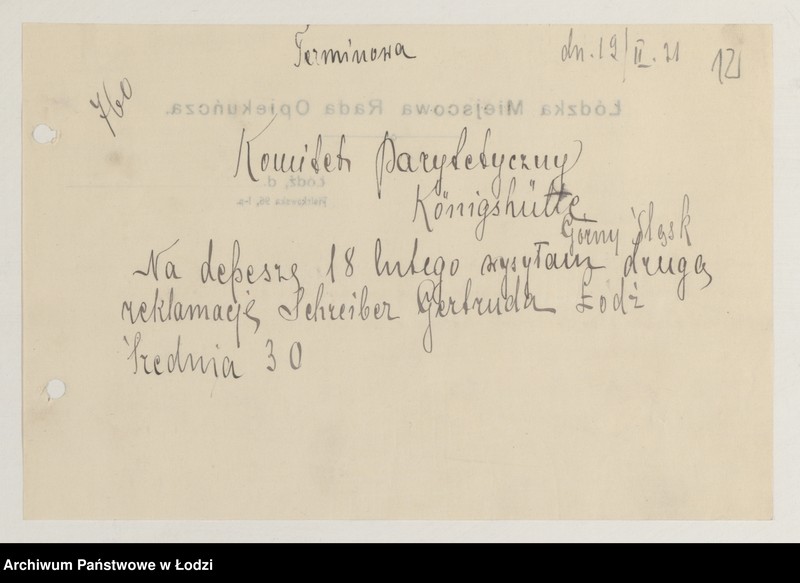 Terminowa
dn. 19/II. 21
121
760
Łódzka Miejscowa Rada Opiekuńcza.
Łódź, d.
Piotrkowska 96, I-p.
Komitet Parytetyczny
Königshütte
Górny Śląsk
Na depeszę 18 lutego wysyłam drugą
reklamację Schreiber Gertruda Łódź
Średnia 30
Archiwum Państwowe w Łodzi